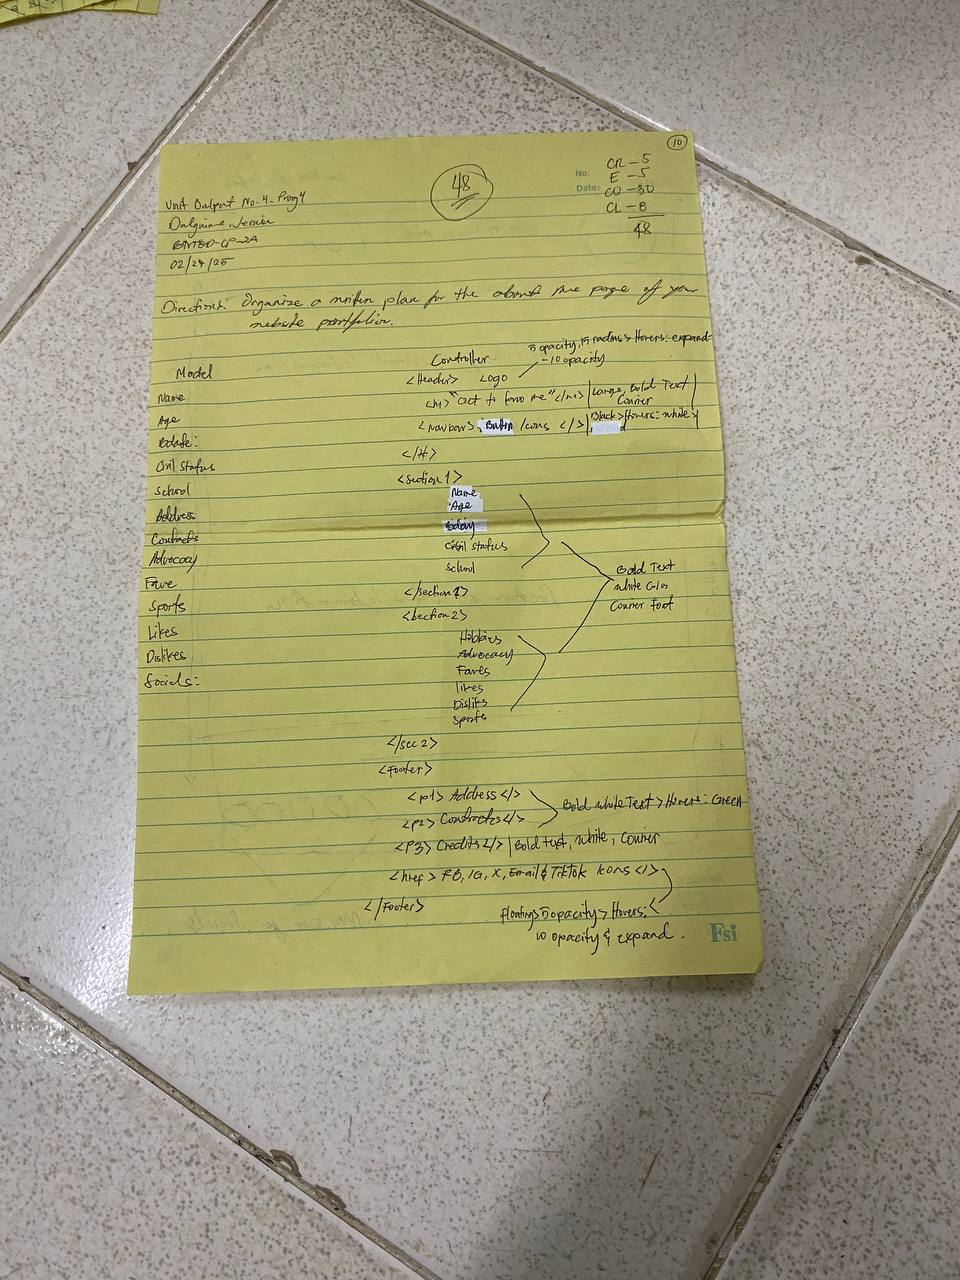 10
CR - 5
No. E - 5
Date: CO - 30
CL - 8
48
48
Unit Output No. 4 - Prog 4
BNTED-CP-2A
02/24/25
Directions: Organize a written plan for the about me page of your
website portfolio.
Model
Name
Age
Bdate:
Civil Status
School
Address
Contacts
Advocacy
Fave
Sports
Likes
Dislikes
Socials:
Controller
5 opacity, 15 radius > Hovers: expand
- 10 opacity
<Header> Logo
<h1> "Get to know me" </h1> | Large, Bold Text
Courier
<navbar> Button Icons </> | Black > Hovers: white >
</H>
<section 1>
Name
Age
Bday
Civil status
School
</section 1>
<section 2>
Hibbies
Advocacy
Faves
likes
Disliks
Sports
Bold Text
white Color
Courier Font
</sec 2>
<Footer>
<p1> Address </>
<p2> Contractss </>
Bold white Text > Hovers: Green
<P3> Credits </> | Bold text, white, Courier
<href> FB, IG, X, Email & TikTok Icons </>
</Footer>
floating > 5 opacity > Hovers:
10 opacity & expand.
Fsi